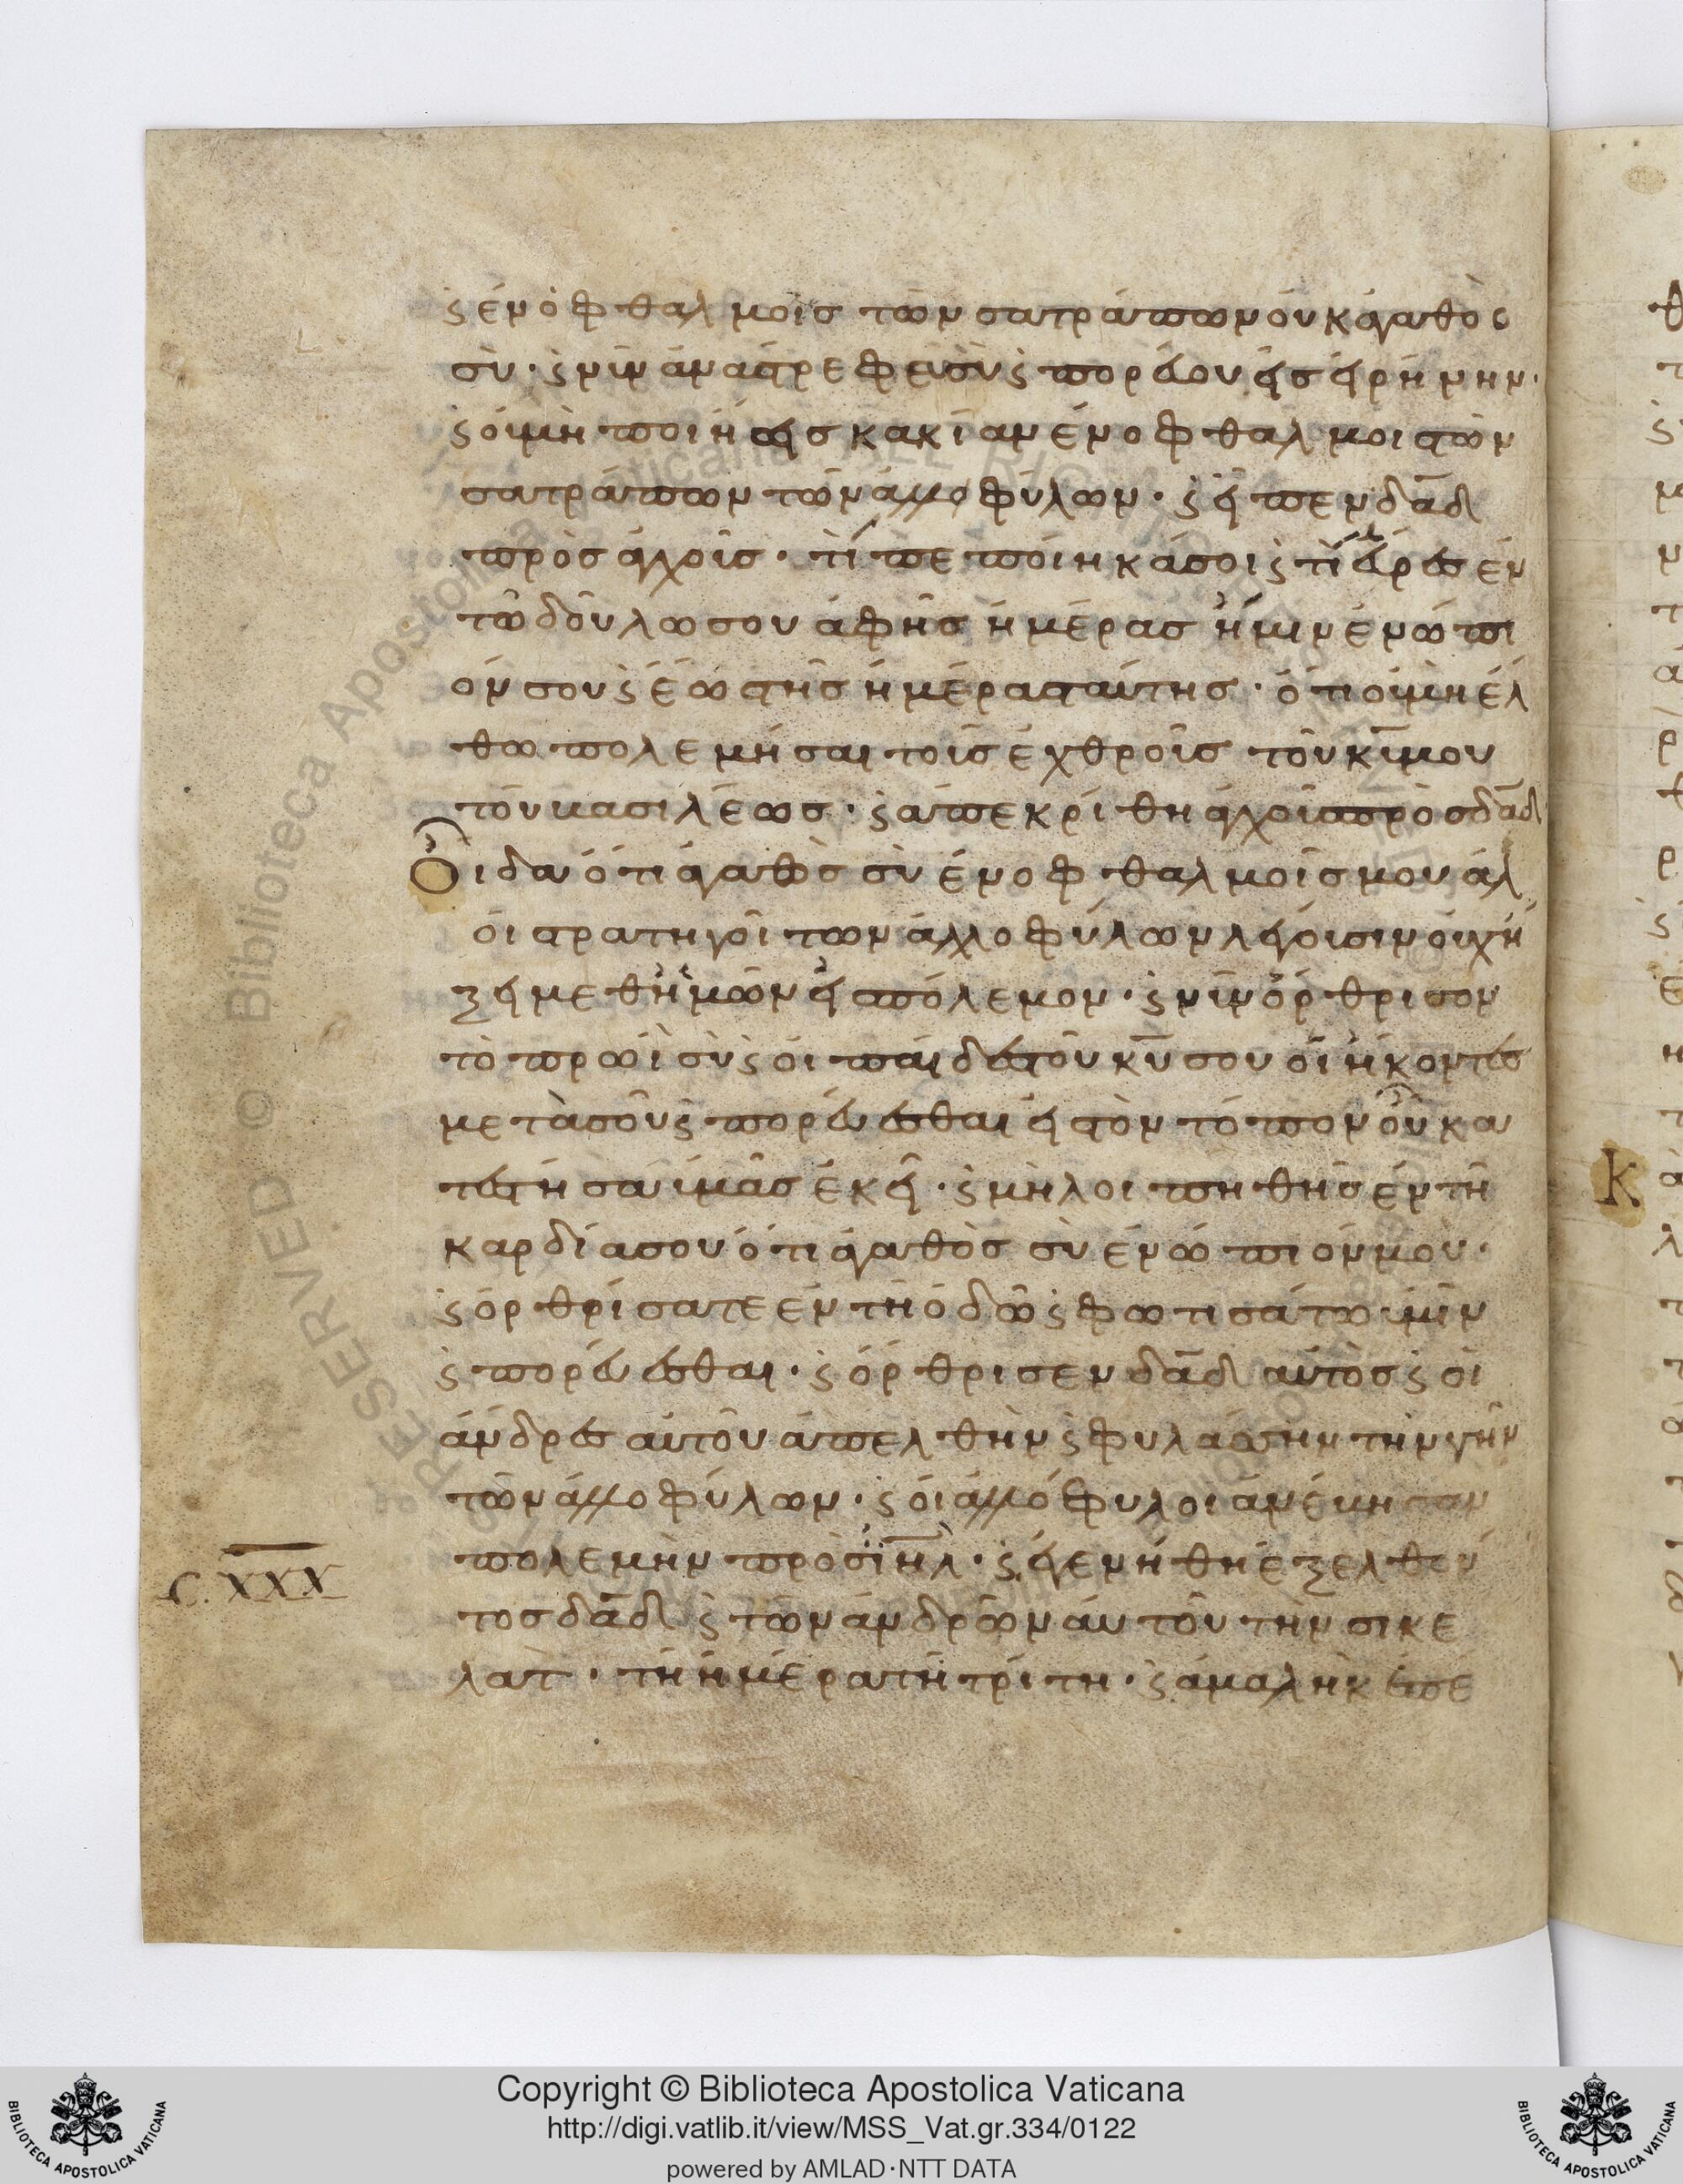 ϛ ἐν ὀφθαλμοῖς τῶν σατράπων οὐκ ἀγαθὸς
σὺ· ϛ νῦν ἀναστρεφει σὺ ϛ πορεύου εἰς εἰρήνην·
ϛ οὐ μὴ ποιήσεις κακίαν ἐν οφθαλμοις τῶν
σατράπων τῶν ἀλλοφύλων· ϛ εἶπεν δᾱδ
πρὸς ἀγχοῖς· τί πεποίηκά σοι ϛ τί εὗρες ἐν
τῶ δούλω σου ἀφῆς ἡμέρας ἤμην ἐνώπι
όν σου ϛ ἕως τῆς ἡμέρας ταύτης· ὅτι οὐ μὴ έλ
θω πολεμῆσαι τοῖς ἐχθροῖς τοῦ κῡ μου
τοῦ βασιλέως· ϛ ἀπεκρίθη ἀγχοῖς πρὸς δᾱδ
Οἶδα ὅτι ἀγαθὸς σὺ ἐν οφθαλμοῖς μου ἀλ
οἱ στρατηγοὶ τῶν ἀλλοφύλων λέγουσιν οὐχ ή
ξει μεθ ἡμῶν εἰς πόλεμον· ϛ νῦν ὄρθρισον
τὸ πρωῒ σὺ ϛ οἱ παῖδες τοῦ κῡ σου οἱ ἥκοντες
μετὰ σοῦ ϛ πορεύεσθαι εἰς τὸν τόπον οὗ κα
τέστησα ὑμᾶς ἐκεῖ· ϛ μὴ λοιπηθῆς ἐν τῆ
καρδία σου ὅτι ἀγαθὸς σὺ ἐνώπιόν μου·
ϛ ὀρθρίσατε ἐν τῆ ὁδῶ ϛ φωτισάτω ὑμῖν
ϛ πορεύεσθαι· ϛ ὄρθρισεν δᾱδ αὐτὸς ϛ οἱ
ἄνδρες αὐτοῦ ἀπελθὴν ϛ φυλάσσην τὴν γῆν
τῶν ἀλλοφύλων· ϛ οἱ ἀλλόφυλοι ἀνέβησαν
πολεμὴν πρὸς ῑηλ· ϛ ἐγενήθη ἐξελθόν
τος δᾱδ ϛ τῶν ἀνδρῶν αὐτοῦ τὴν σικε
λατ· τῆ ἡμέρα τῆ τρίτη· ϛ ἀμαλὴκ ἐπέ
C. XXX
Copyright © Biblioteca Apostolica Vaticana
http://digi.vatlib.it/view/MSS_Vat.gr.334/0122
powered by AMLAD·NTT DATA